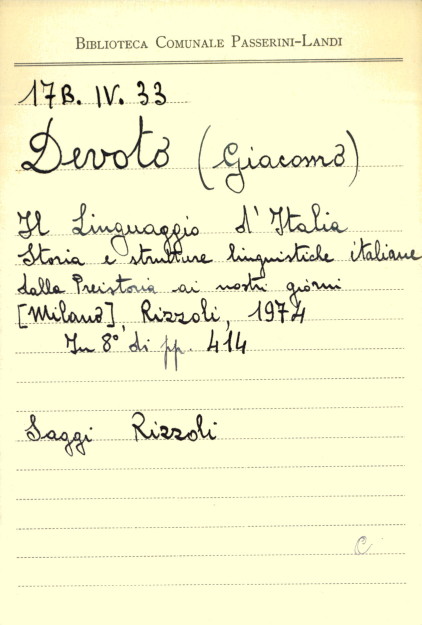 BIBLIOTECA COMUNALE PASSERINI-LANDI
17B. IV. 33
Devoto (Giacomo)
Il Linguaggio d'Italia
Storia e strutture linguistiche italiane
dalla Preistoria ai nostri giorni
[Milano], Rizzoli, 1974
In 8° di pp. 414
Saggi Rizzoli
C